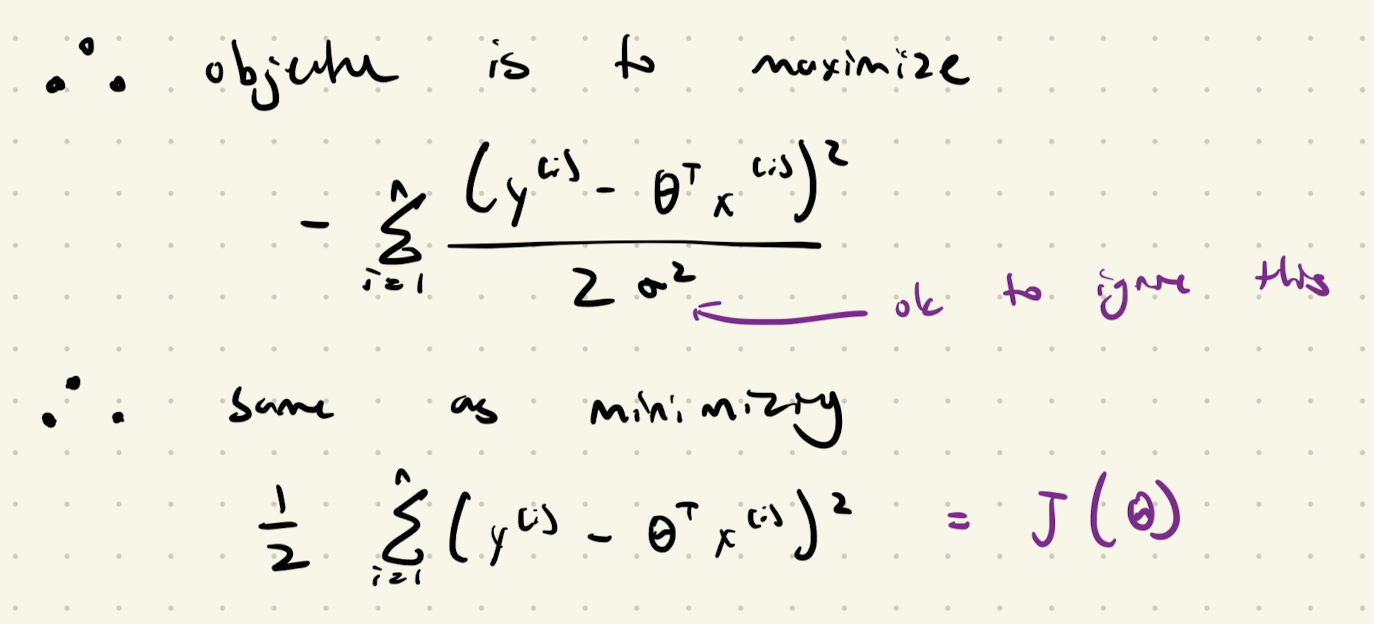 ∴ objective is to maximize
- Σ_{i=1}^{n} (y^{(i)} - θ^T x^{(i)})^2 / 2σ^2 ← ok to ignore this
∴ same as minimizing
1/2 Σ_{i=1}^{n} (y^{(i)} - θ^T x^{(i)})^2 = J(θ)